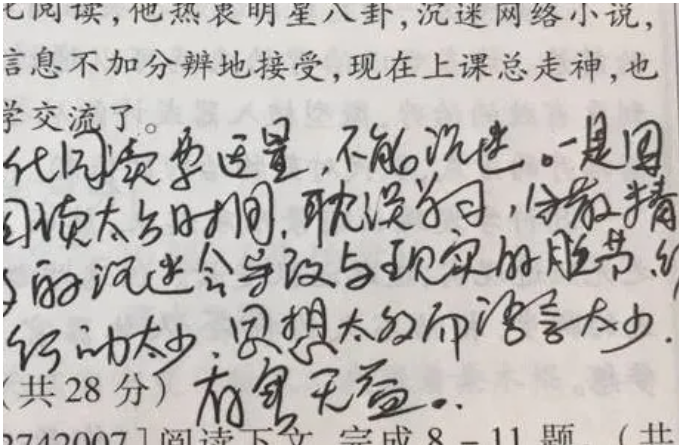 阅读，他热衷明星八卦，沉迷网络小说，
言息不加分辨地接受，现在上课总走神，也
学交流了。
代阅读要适量，不能沉迷。一是因
阅读太多时间，耽误学习，分散精
的沉迷会导致与现实的脱节，
行动太少，思想太多而语言太少，
（共28分）有害无益。
2742007]阅读下文，完成8-11题。（共